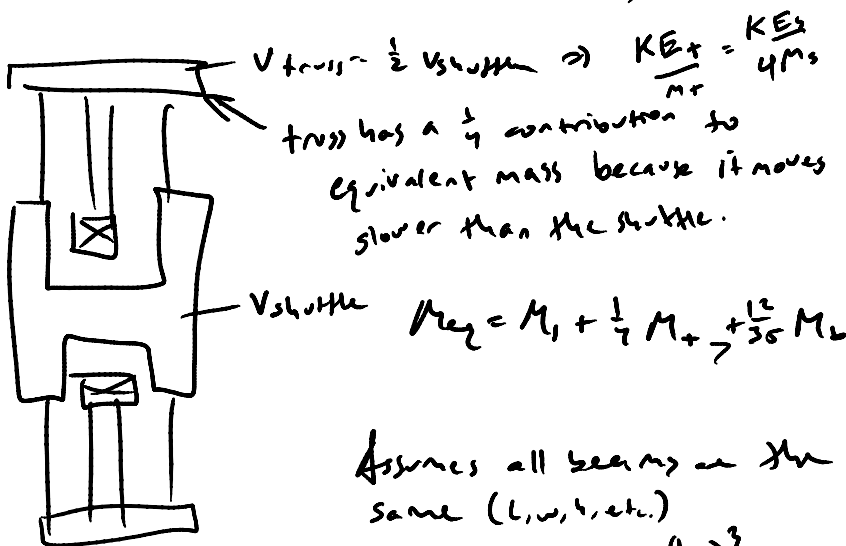 V truss ~ 1/2 Vshuttle ⇒ KE_t/m_t = KE_s/4M_s
truss has a 1/4 contribution to
equivalent mass because it moves
slower than the shuttle.
Vshuttle
M_eq = M_s + 1/4 M_t + 12/35 M_b
Assumes all beams are the
same (L, w, h, etc.)